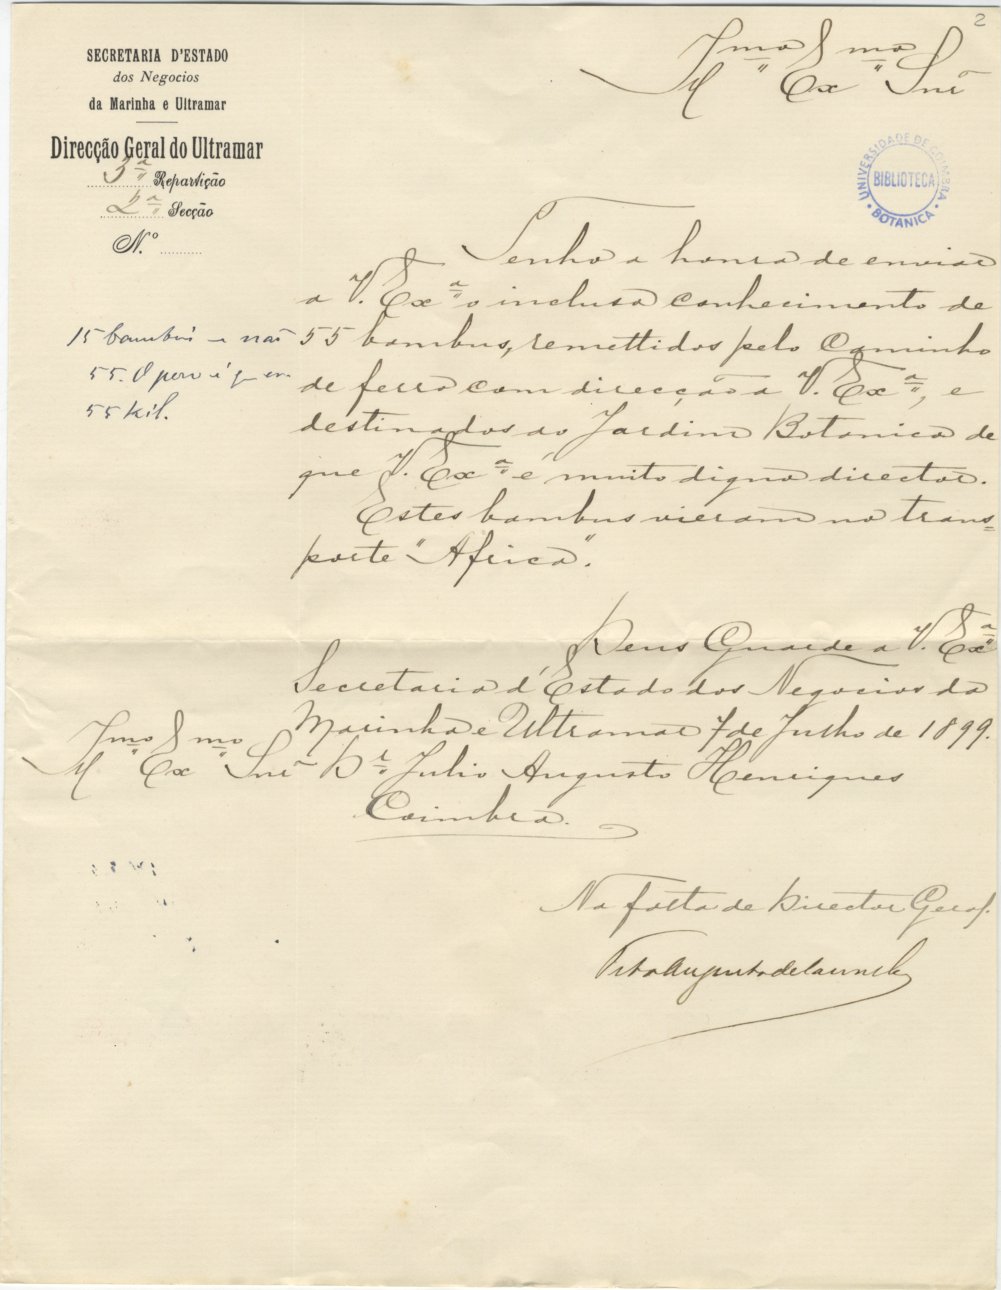 2
SECRETARIA D'ESTADO
dos Negocios
da Marinha e Ultramar
Direcção Geral do Ultramar
3ª Repartição
2ª Secção
N.º
Illmo Exmo Snr
UNIVERSIDADE DE COIMBRA
BIBLIOTECA
BOTANICA
Tenho a honra de enviar
a V. Exª o incluso conhecimento de
55 bambus, remettidos pelo Caminho
de ferro com direcção a V. Exª, e
destinados ao Jardim Botanico de
que V. Exª é muito digno director.
Estes bambus vieram no trans=
porte "Africa".
15 bambús e não
55. O pero é q̃ era
55 kil.
Deus Guarde a V. Exª
Secretaria d'Estado dos Negocios da
Marinha e Ultramar 7 de Julho de 1899.
Illmo Exmo Snr Dr Julio Augusto Henriques
Coimbra.
Na falta de Director Geral.
Tito Augusto de